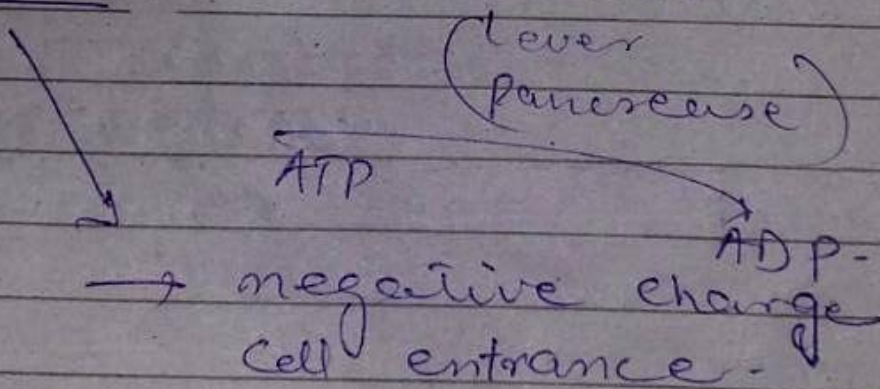 (lever
pancrease)
ATP
ADP-
→ negative charge
Cell entrance.